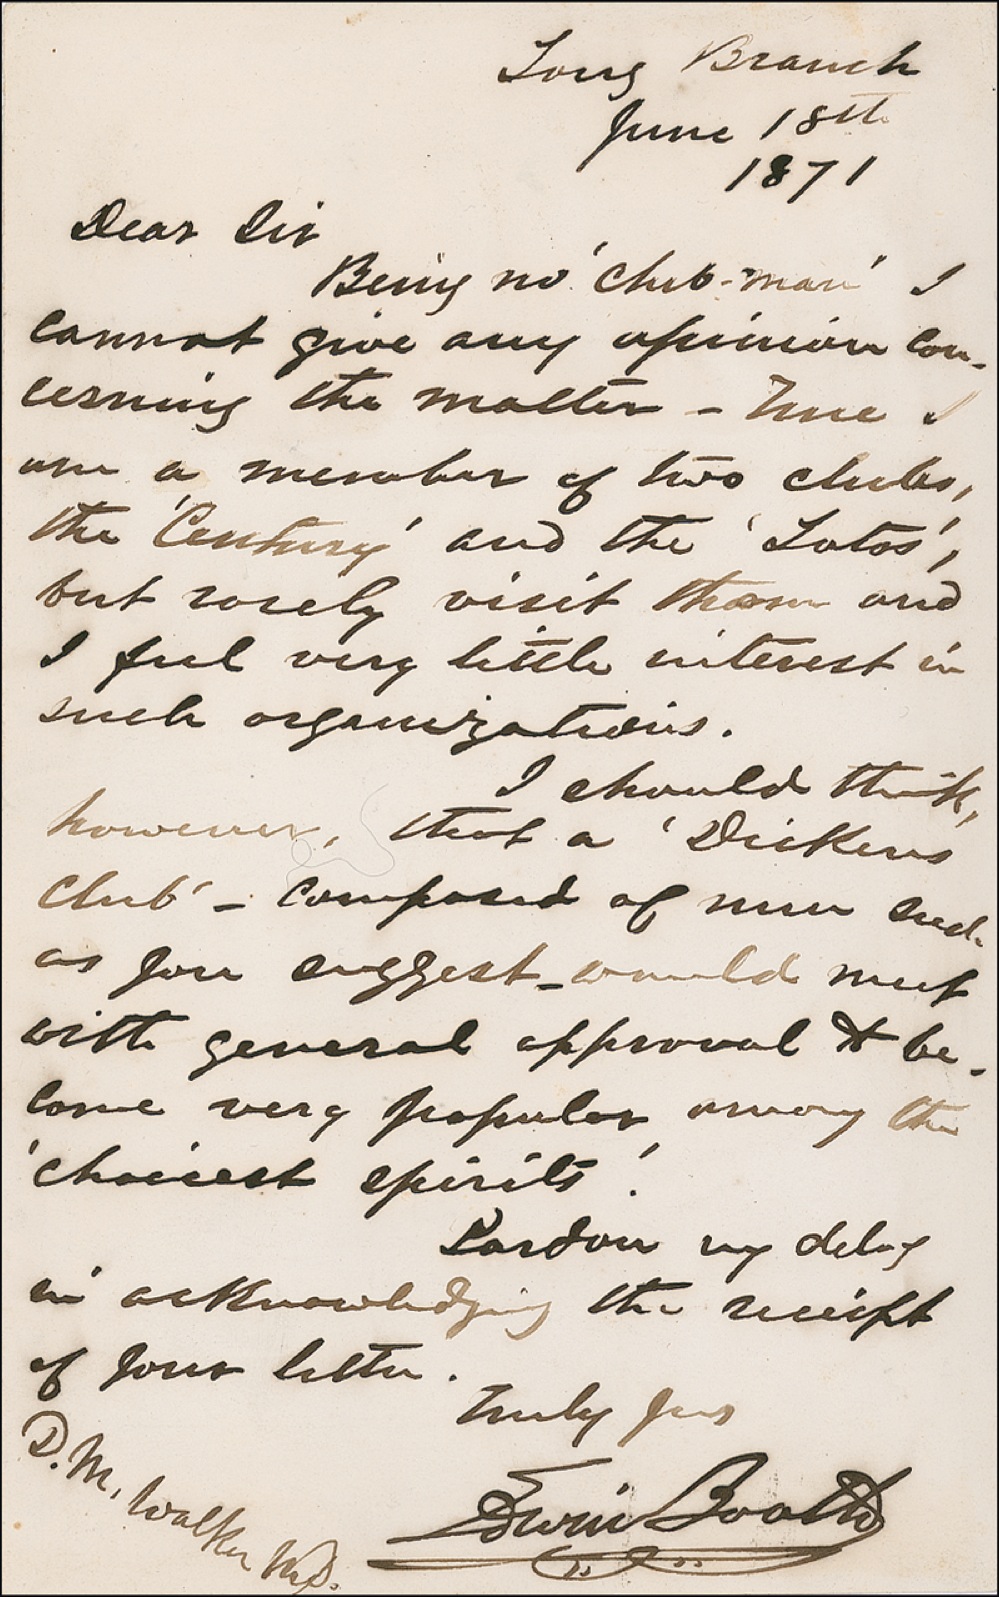 Long Branch
June 18th
1871
Dear Sir
Being no 'club-man' I
cannot give any opinion con-
cerning the matter - True I
am a member of two clubs,
the 'Century' and the 'Lotos',
but rarely visit them and
I feel very little interest in
such organizations.
I should think,
however, that a 'Dickens
Club' - composed of men such
as you suggest - would meet
with general approval & be-
come very popular among the
'choicest spirits'.
Pardon my delay
in acknowledging the receipt
of your letter.
Truly yours
Edwin Booth
D. M. Walker MD.